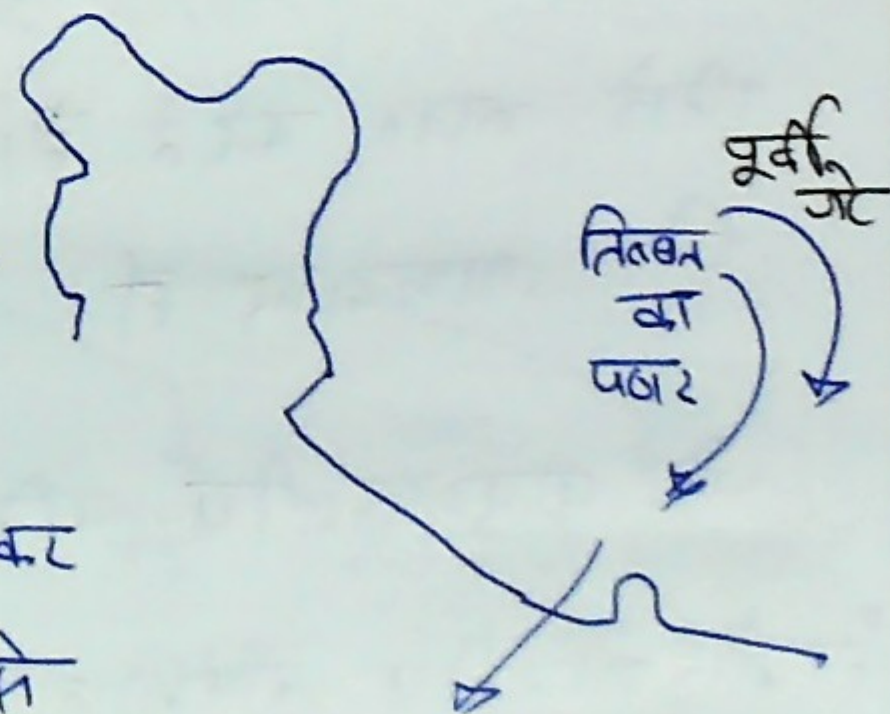 पूर्वी
जेट
तिब्बत
का
पठार
कर